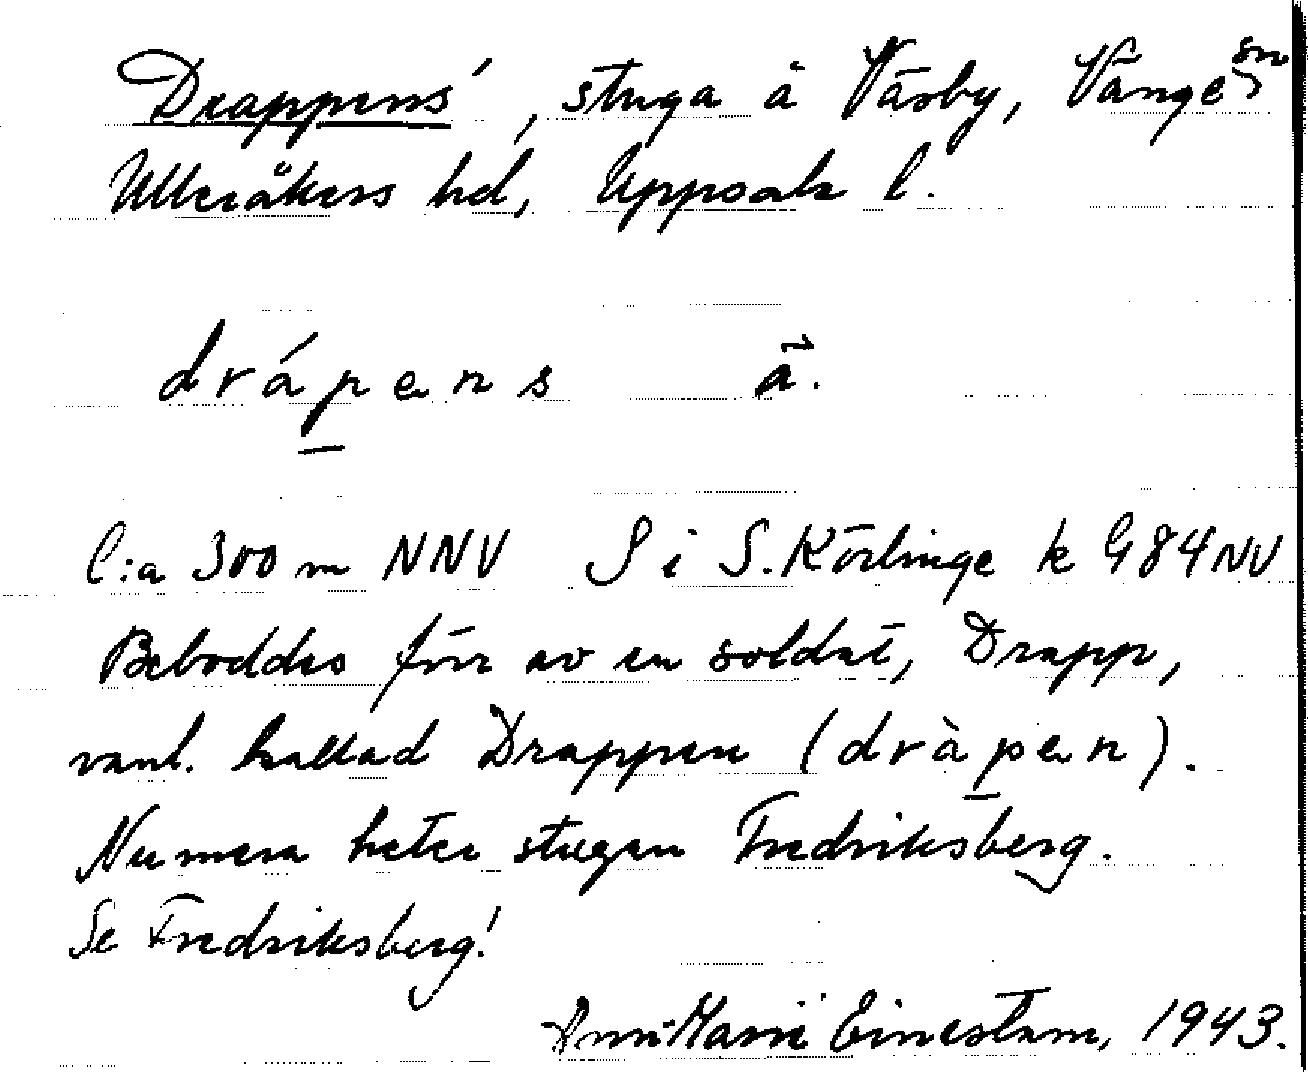 Drappens', stuga å Väsby, Vänge sn
Ulleråkers hd, Uppsala l.
drápens ä.
C:a 300 m NNV S i S. Körlinge k G84NV
Beboddes förr av en soldat, Drapp,
vanl. kallad Drappen (dràpen).
Numera heter stugan Fredriksberg.
Se Fredriksberg!
Ann-Marie Einestam, 1943.